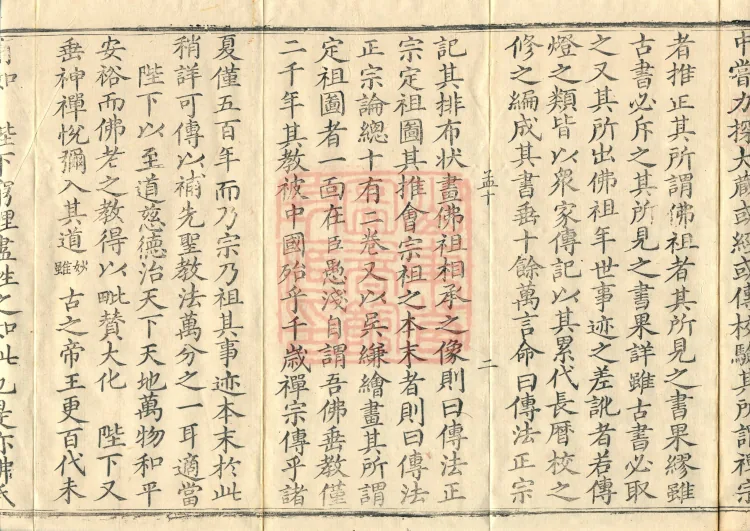 中嘗力探大藏或經或傳校驗其所謂禪宗
者推正其所謂佛祖者其所見之書果繆雖
古書必斥之其所見之書果詳雖古書必取
之又其所出佛祖年世事迹之差訛者若傳
燈之類皆以衆家傳記以其累代長曆校之
修之編成其書垂十餘萬言命曰傳法正宗
孟十
二
記其排布狀畫佛祖相承之像則曰傳法正
宗定祖圖其推會宗祖之本末者則曰傳法
正宗論總十有二卷又以吳縑繪畫其所謂
定祖圖者一面在臣愚淺自謂吾佛垂教僅
二千年其教被中國殆乎千歲禪宗傳乎諸
夏僅五百年而乃宗乃祖其事迹本末於此
稍詳可傳以補先聖教法萬分之一耳適當
陛下以至道慈德治天下天地萬物和平
安裕而佛老之教得以毗贊大化 陛下又
垂神禪悅彌入其道妙雖古之帝王更百代未
有如 陛下窮理盡性之如此也是亦佛氏